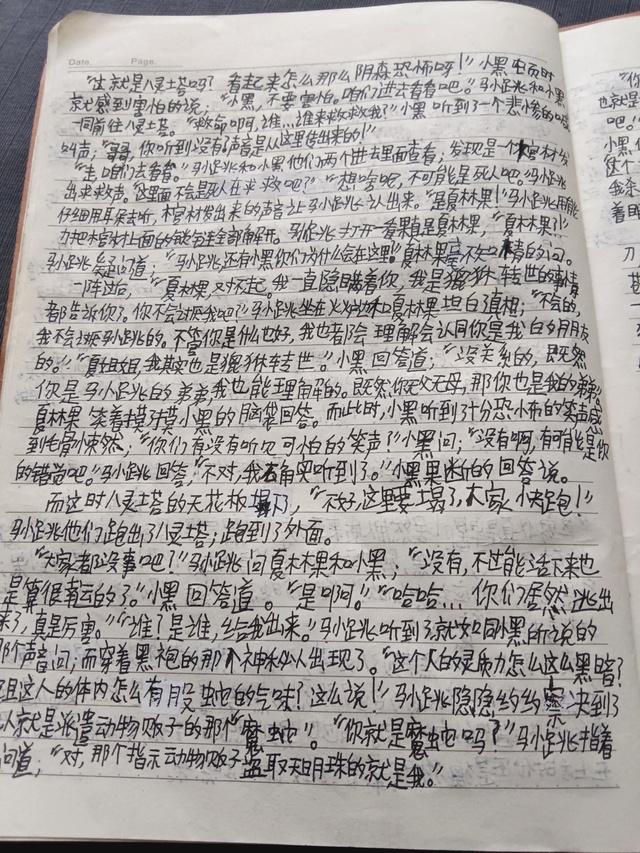 Date. Page.
"这就是八灵塔吗？看起来怎么那么阴森恐怖呀！"小黑
就感到害怕的说；"小黑，不要害怕。咱们进去看看吧。"马小跳和小黑
一同前往八灵塔。"救命啊，谁…谁来救救我？"小黑听到了一个悲惨的
叫声；"哥哥，你听到没有？声音是从这里传出来的！"
"走，咱们去看看。"马小跳和小黑他们两个进去里面查看，发现是一个棺材发
出求救声。"这里面不会是死人在求救吧？""想啥呢，不可能是死人吧。"马小跳
仔细用耳朵去听，木棺材发出来的声音让马小跳认出来。"是夏林果！"马小跳用能
力把木棺材上面的锁链全部解开。马小跳打开一看果真是夏林果，"夏林果？！"
马小跳问道；"马小跳还有小黑你们为什么会在这里。"夏林果毫不知情的问。
一阵过后，"夏林果，对不起。我一直隐瞒着你，我是貔貅转世的事情
都告诉你了。你不会讨厌我吧？"马小跳坐在火炉边和夏林果坦白了真相；"不会的，
我不会讨厌马小跳的。不管你是什么也好，我也都会理解会认同你是我的朋友
的。""夏姐姐，我其实也是貔貅转世。"小黑回答道；"没关系的，既然
你是马小跳的弟弟，我也能理解的。既然你无父无母，那你也是我的弟弟。"
夏林果笑着摸摸小黑的脑袋回答。而此时，小黑听到了十分恐怖的笑声感
到毛骨悚然；"你们有没有听见可怕的笑声？"小黑问；"没有啊，有可能是你
的错觉吧。"马小跳回答，"不对，我确实听到了。"小黑果断的回答说。
而这时八灵塔的天花板塌了，"不好，这里要塌了，大家，快跑！"
马小跳他们跑出了八灵塔；跑到了外面。
"大家都没事吧？"马小跳问夏林果和小黑；"没有，不过能活下来也
是算很幸运的了。"小黑回答道。"是啊。""哈哈…你们居然逃出
来了，真是厉害。""谁？是谁，给我出来。"马小跳听到了就如同小黑所说的
那个声音问，而穿着黑袍的那个神秘人出现了。"这个人的灵质力怎么这么黑暗？
且这人的体内怎么有股蛇的气味？这么说！"马小跳隐隐约约察决到了
人就是派遣动物贩子的那个"魔蛇"。"你就是魔蛇吗？"马小跳指着
问道；"对，那个指示动物贩子盗取天明珠的就是我。"